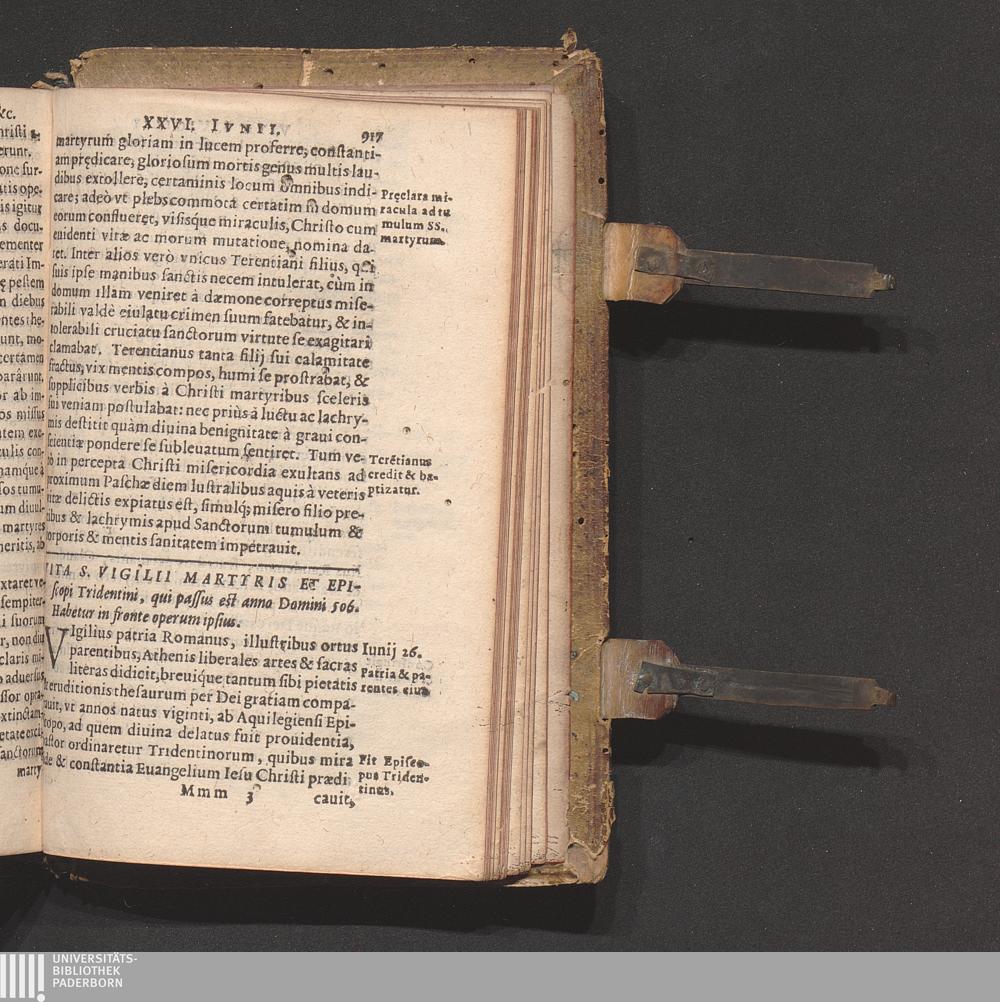 &c.
erunt,
one sur-
is igitur
s docu-
ementer
erati Im-
ę pestem
n diebus
ntes the-
unt, mo-
certamen
parârunt,
or ab im-
os missus
ntem exe-
culis con-
namque à
sos tumu-
um diuul-
martyres
neritis, ab
xtaret ve-
sempiter-
i suorum
r, non diu
claris mi-
o aduersus
ssor opta-
xtinctam
etate exci-
sanctorum
marty-
XXVI. IVNII. 917
martyrum gloriam in lucem proferre, constanti-
am prędicare, gloriosum mortis genus multis lau-
dibus extollere, certaminis locum omnibus indi-
care; adeò vt plebs commota certatim in domum
eorum conflueret, visisque miraculis, Christo cum
euidenti vitæ ac morum mutatione, nomina da-
ret. Inter alios verò vnicus Terentiani filius, qui
suis ipse manibus sanctis necem intulerat, cùm in
domum illam veniret à dæmone correptus mise-
rabili valdè eiulatu crimen suum fatebatur, & in-
tolerabili cruciatu sanctorum virtute se exagitari
clamabat. Terentianus tanta filij sui calamitate
fractus, vix mentis compos, humi se prostrabat, &
supplicibus verbis à Christi martyribus sceleris
sui veniam postulabat: nec priùs à luctu ac lachry-
mis destitit quàm diuina benignitate à graui con-
scientiæ pondere se subleuatum sentiret. Tum ve-
rò in percepta Christi misericordia exultans ad
proximum Paschæ diem lustralibus aquis à veteris
vitæ delictis expiatus est, simulq; misero filio pre-
cibus & lachrymis apud Sanctorum tumulum &
corporis & mentis sanitatem impetrauit.
Pręclara mi-
racula ad tu
mulum SS.
martyrum.
Terētianus
credit & ba-
ptizatur.
VITA S. VIGILII MARTYRIS ET EPI-
scopi Tridentini, qui passus est anno Domini 506.
Habetur in fronte operum ipsius.
VIgilius patria Romanus, illustribus ortus
parentibus, Athenis liberales artes & sacras
literas didicit, breuique tantum sibi pietatis
& eruditionis thesaurum per Dei gratiam compa-
rauit, vt annos natus viginti, ab Aquilegiensi Epi-
scopo, ad quem diuina delatus fuit prouidentia,
pastor ordinaretur Tridentinorum, quibus mira
fide & constantia Euangelium Iesu Christi prædi-
Iunij 26.
Patria & pa-
rentes eius
Fit Episco-
pus Triden-
tinus.
Mmm 3 cauit,
UNIVERSITÄTS-
BIBLIOTHEK
PADERBORN